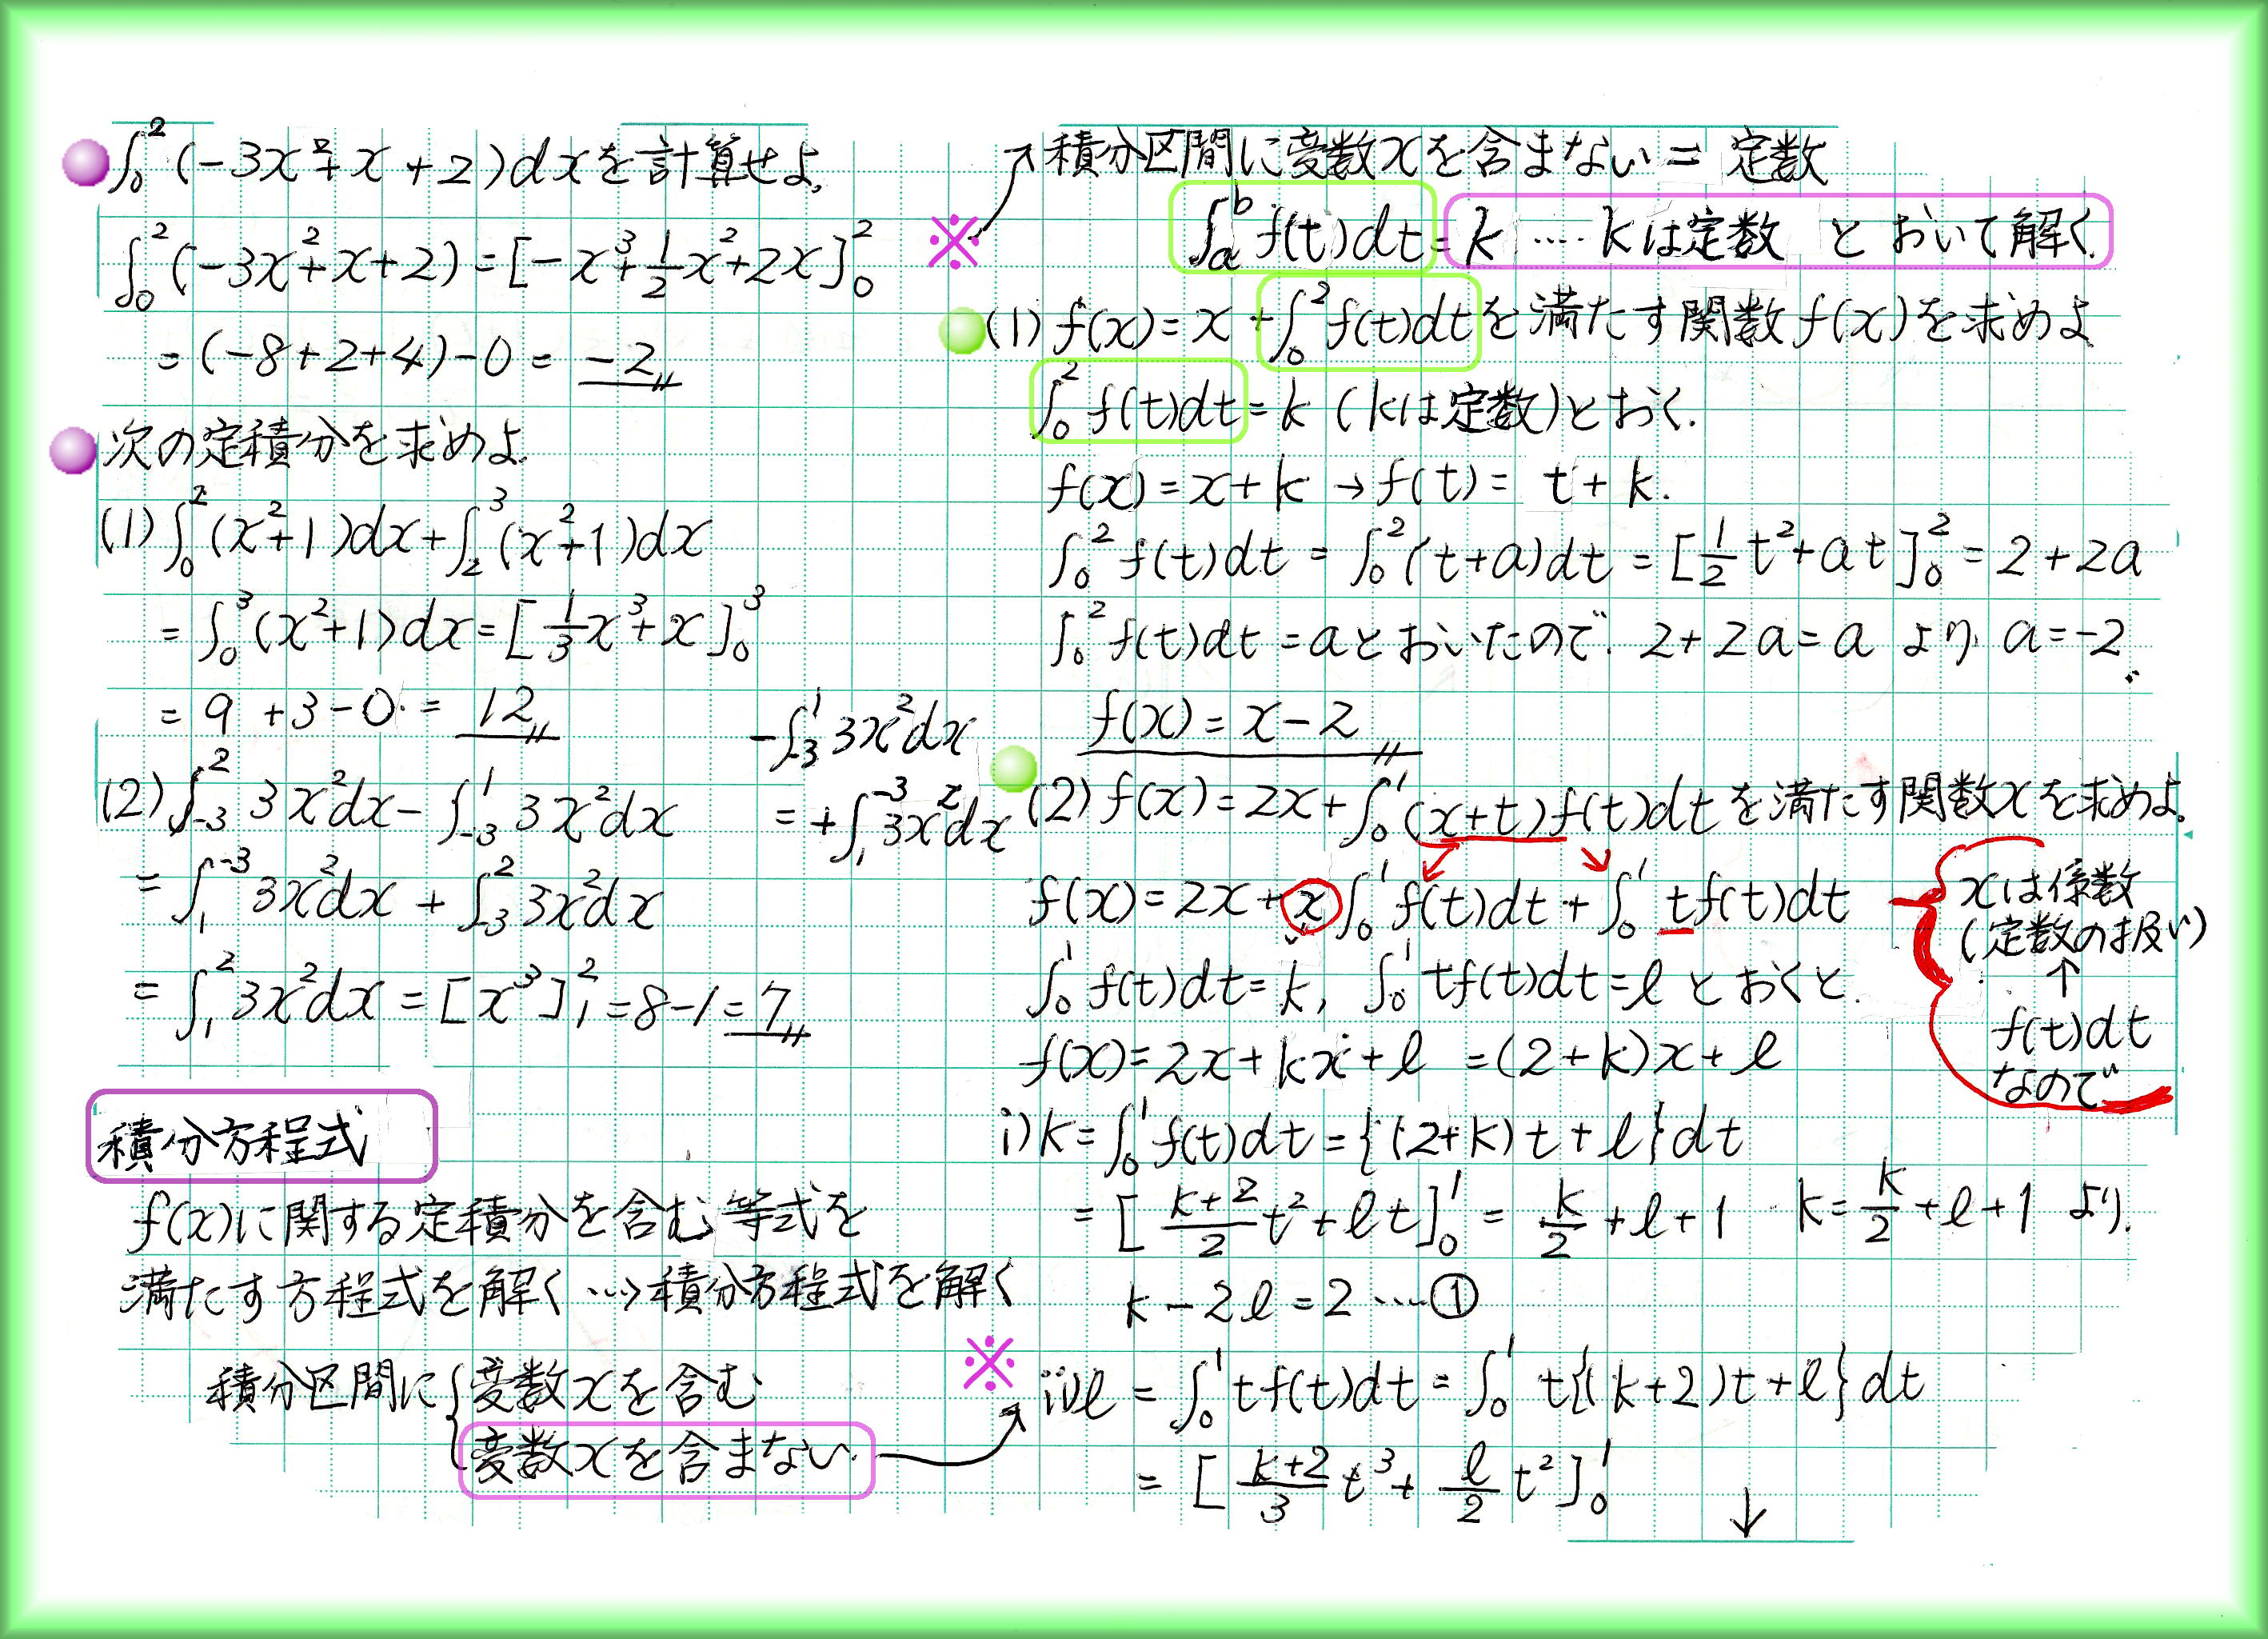 ∫₀² (-3x²+x+2)dxを計算せよ.
∫₀² (-3x²+x+2) = [-x³+1/2x²+2x]₀²
= (-8+2+4)-0 = -2
次の定積分を求めよ.
(1) ∫₀² (x²+1)dx+∫₂³ (x²+1)dx
= ∫₀³ (x²+1)dx = [1/3x³+x]₀³
= 9+3-0 = 12
(2) ∫₋₃² 3x²dx - ∫₋₃¹ 3x²dx
-∫₋₃¹ 3x²dx
= +∫₁⁻³ 3x²dx
= ∫₁⁻³ 3x²dx + ∫₋₃² 3x²dx
= ∫₁² 3x²dx = [x³]₁² = 8-1 = 7
積分方程式
f(x)に関する定積分を含む等式を
満たす方程式を解く …→積分方程式を解く
積分区間に{変数xを含む
変数xを含まない.
※
積分区間に変数xを含まない = 定数
※ ∫ₐᵇ f(t)dt = k …. kは定数 とおいて解く.
(1) f(x) = x+∫₀² f(t)dtを満たす関数f(x)を求めよ
∫₀² f(t)dt = k (kは定数)とおく.
f(x) = x+k → f(t) = t+k.
∫₀² f(t)dt = ∫₀² (t+a)dt = [1/2t²+at]₀² = 2+2a
∫₀² f(t)dt = aとおいたので. 2+2a=a より a=-2.
f(x) = x-2
(2) f(x) = 2x+∫₀¹ (x+t)f(t)dtを満たす関数xを求めよ.
f(x) = 2x+x∫₀¹ f(t)dt+∫₀¹ tf(t)dt
xは係数
(定数の扱い)
↑
f(t)dt
なので
∫₀¹ f(t)dt=k, ∫₀¹ tf(t)dt=ℓ とおくと.
f(x)=2x+kx+ℓ =(2+k)x+ℓ
i) k=∫₀¹ f(t)dt={(2+k)t+ℓ}dt
= [k+2/2 t²+ℓt]₀¹ = k/2+ℓ+1 k=k/2+ℓ+1 より.
k-2ℓ=2 …①
ii) ℓ = ∫₀¹ tf(t)dt = ∫₀¹ t{(k+2)t+ℓ}dt
= [k+2/3 t³+ℓ/2 t²]₀¹
↓